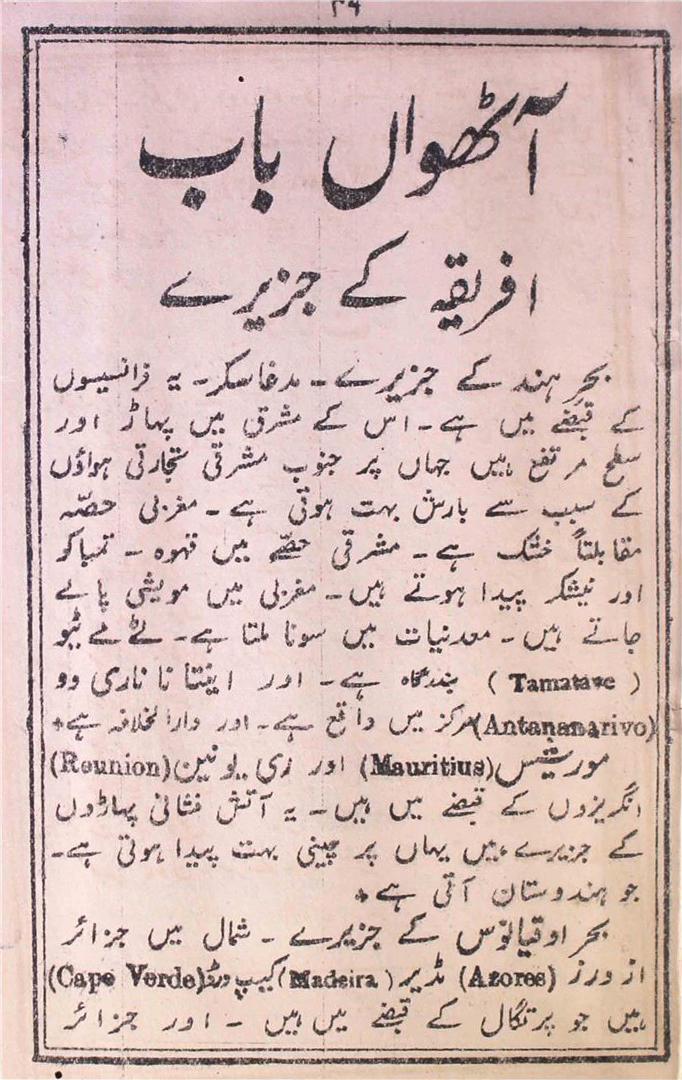 ۴۹
آٹھواں باب
افریقہ کے جزیرے
بحر ہند کے جزیرے ۔ مدغاسکر۔ یہ فرانسیسوں
کے قبضے میں ہے ۔ اس کے مشرق میں پہاڑ اور
سطح مرتفع ہیں جہاں پر جنوب مشرقی تجارتی ہواؤں
کے سبب سے بارش بہت ہوتی ہے ۔ مغربی حصّہ
مقابلتاً خشک ہے ۔ مشرقی حصّے میں قہوہ ۔ تمباکو
اور نیشکر پیدا ہوتے ہیں ۔ مغربی میں مویشی پالے
جاتے ہیں ۔ معدنیات میں سونا ملتا ہے ۔ ٹےمےٹیو
(Tamatave) بندرگاہ ہے ۔ اور اینتانا ناری وو
(Antananarivo) مرکز میں واقع ہے ۔ اور دارالخلافہ ہے ۔
موریشس (Mauritius) اور ری یونین (Reunion)
انگریزوں کے قبضے میں ہیں ۔ یہ آتش فشانی پہاڑوں
کے جزیرے ہیں یہاں پر چینی بہت پیدا ہوتی ہے ۔
جو ہندوستان آتی ہے ۔
بحر اوقیانوس کے جزیرے ۔ شمال میں جزائر
ازورز (Azores) مڈیر (Madeira) کیپ ورڈ (Cape Verde)
ہیں جو پرتگال کے قبضے میں ہیں ۔ اور جزائر